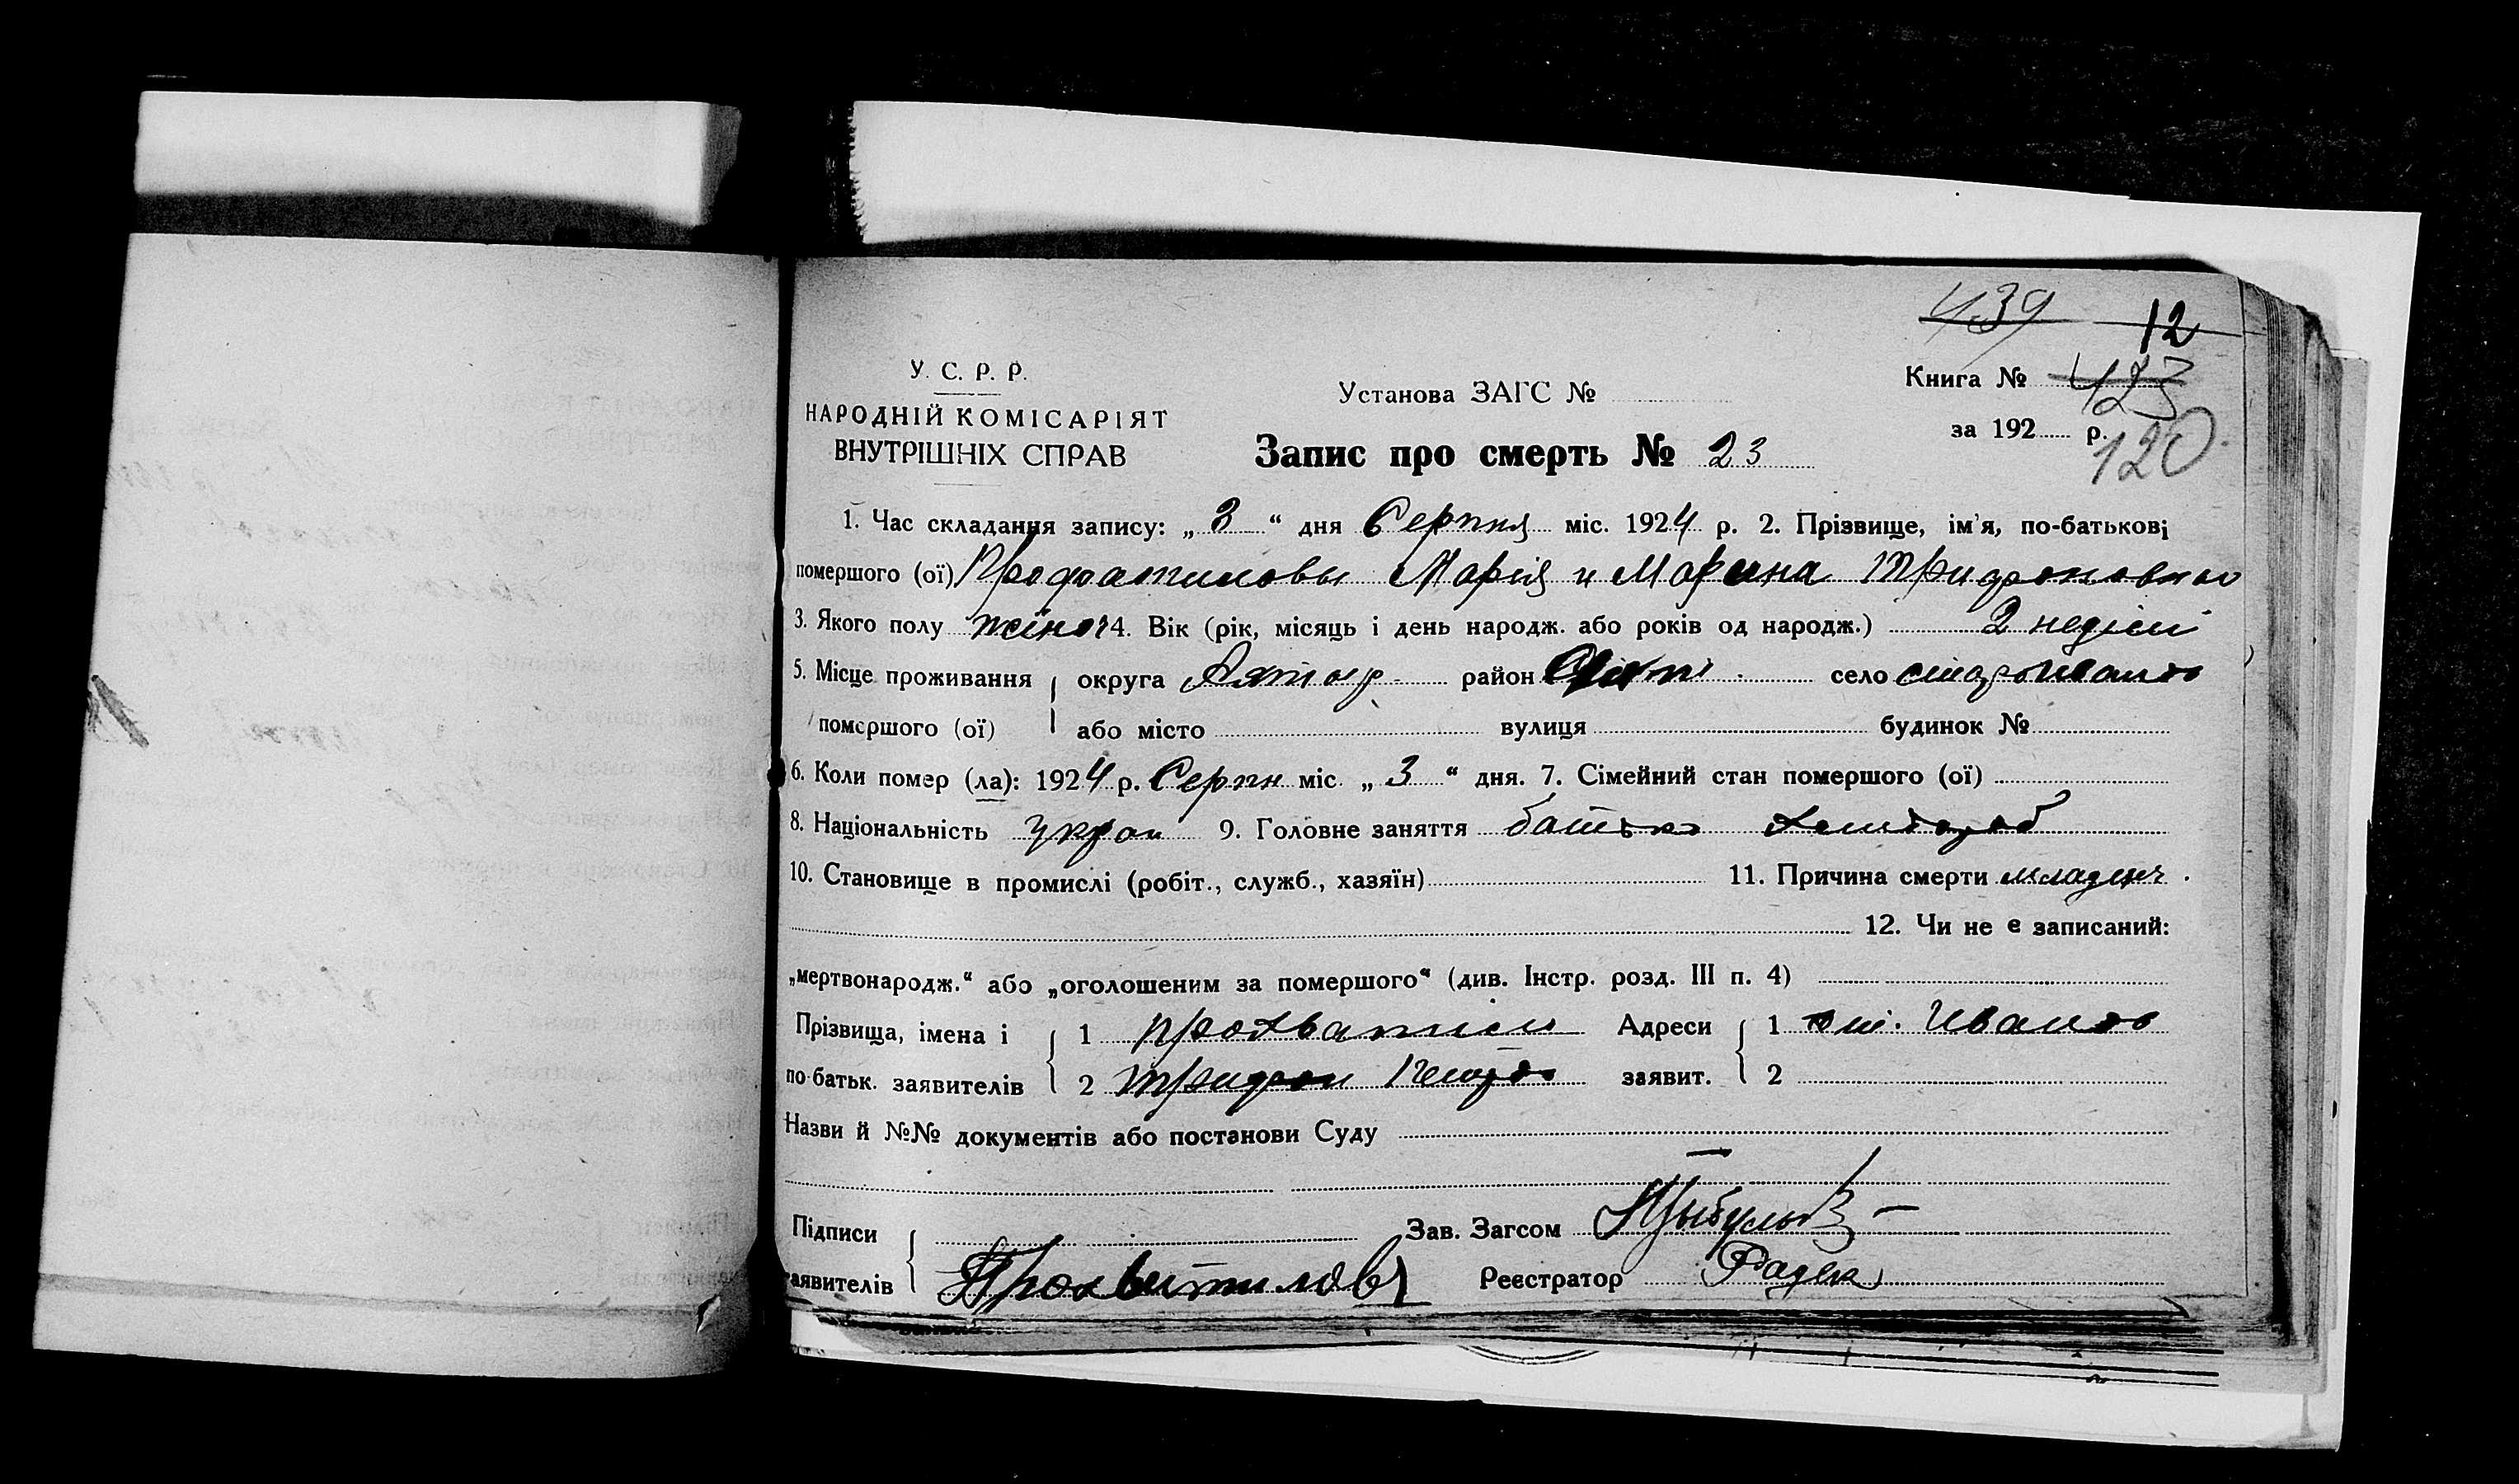 439 12
У. С. Р. Р.
НАРОДНІЙ КОМІСАРІЯТ
ВНУТРІШНІХ СПРАВ
Установа ЗАГС №
Книга № 423
за 192 р.
120
Запис про смерть № 23
1. Час складання запису: „ 3 “ дня Серпня міс. 1924 р. 2. Прізвище, ім'я, по-батькові
помершого (ої) Марія и Марина
3. Якого полу жіноч 4. Вік (рік, місяць і день народж. або років од народж.) 2 неділі
5. Місце проживання округа район село
помершого (ої) або місто вулиця будинок №
6. Коли помер (ла): 1924 р. Серпн міс. „ 3 “ дня. 7. Сімейний стан помершого (ої)
8. Національність Украи 9. Головне заняття батько хлебороб
10. Становище в промислі (робіт., служб., хазяїн) 11. Причина смерти младенч.
12. Чи не є записаний:
„мертвонародж.“ або „оголошеним за помершого“ (див. Інстр. розд. III п. 4)
Прізвища, імена і 1 Адреси 1
по-батьк. заявителів 2 Трифон заявит. 2
Назви й №№ документів або постанови Суду
Підписи Зав. Загсом
заявителів Реєстратор